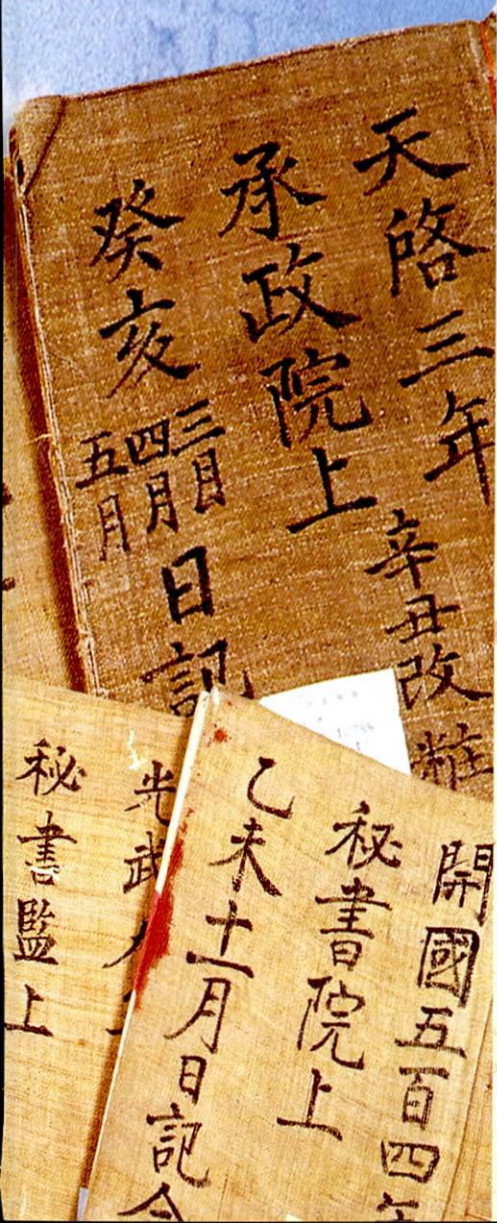 天啓三年 辛丑改粧
承政院上
癸亥 三月 四月 五月 日記
開國五百四年
秘書院上
乙未十一月日記合
光武八年
秘書監上